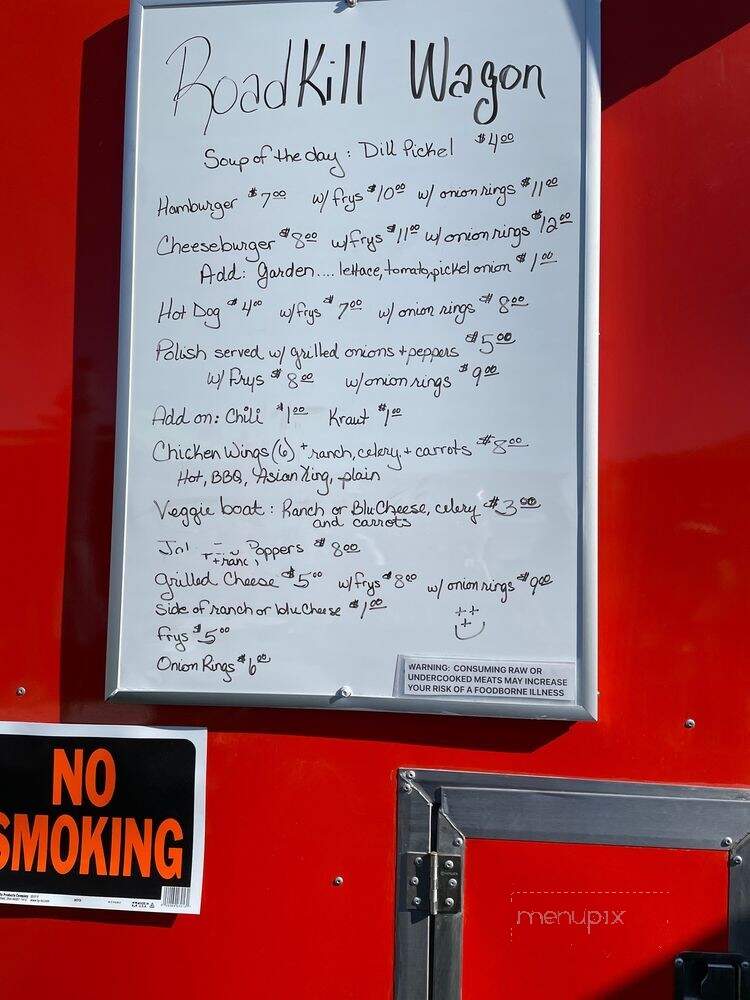 RoadKill Wagon
Soup of the day: Dill Pickel $4.00
Hamburger $7.00 w/ frys $10.00 w/ onion rings $11.00
Cheeseburger $8.00 w/ frys $11.00 w/ onion rings $12.00
Add: Garden.... lettace, tomato, pickel onion $1.00
Hot Dog $4.00 w/ frys $7.00 w/ onion rings $8.00
Polish served w/ grilled onions + peppers $5.00
w/ Frys $8.00 w/ onion rings $9.00
Add on: Chili $1.00 Kraut $1.00
Chicken Wings (6) + ranch, celery + carrots $8.00
Hot, BBQ, Asian Zing, plain
Veggie boat: Ranch or Blu Cheese, celery $3.00
and carrots
Poppers $8.00
grilled Cheese $5.00 w/ frys $8.00 w/ onion rings $9.00
side of ranch or blu Cheese $1.00
Frys $5.00
Onion Rings $6.00
WARNING: CONSUMING RAW OR
UNDERCOOKED MEATS MAY INCREASE
YOUR RISK OF A FOODBORNE ILLNESS
NO
SMOKING
menupix